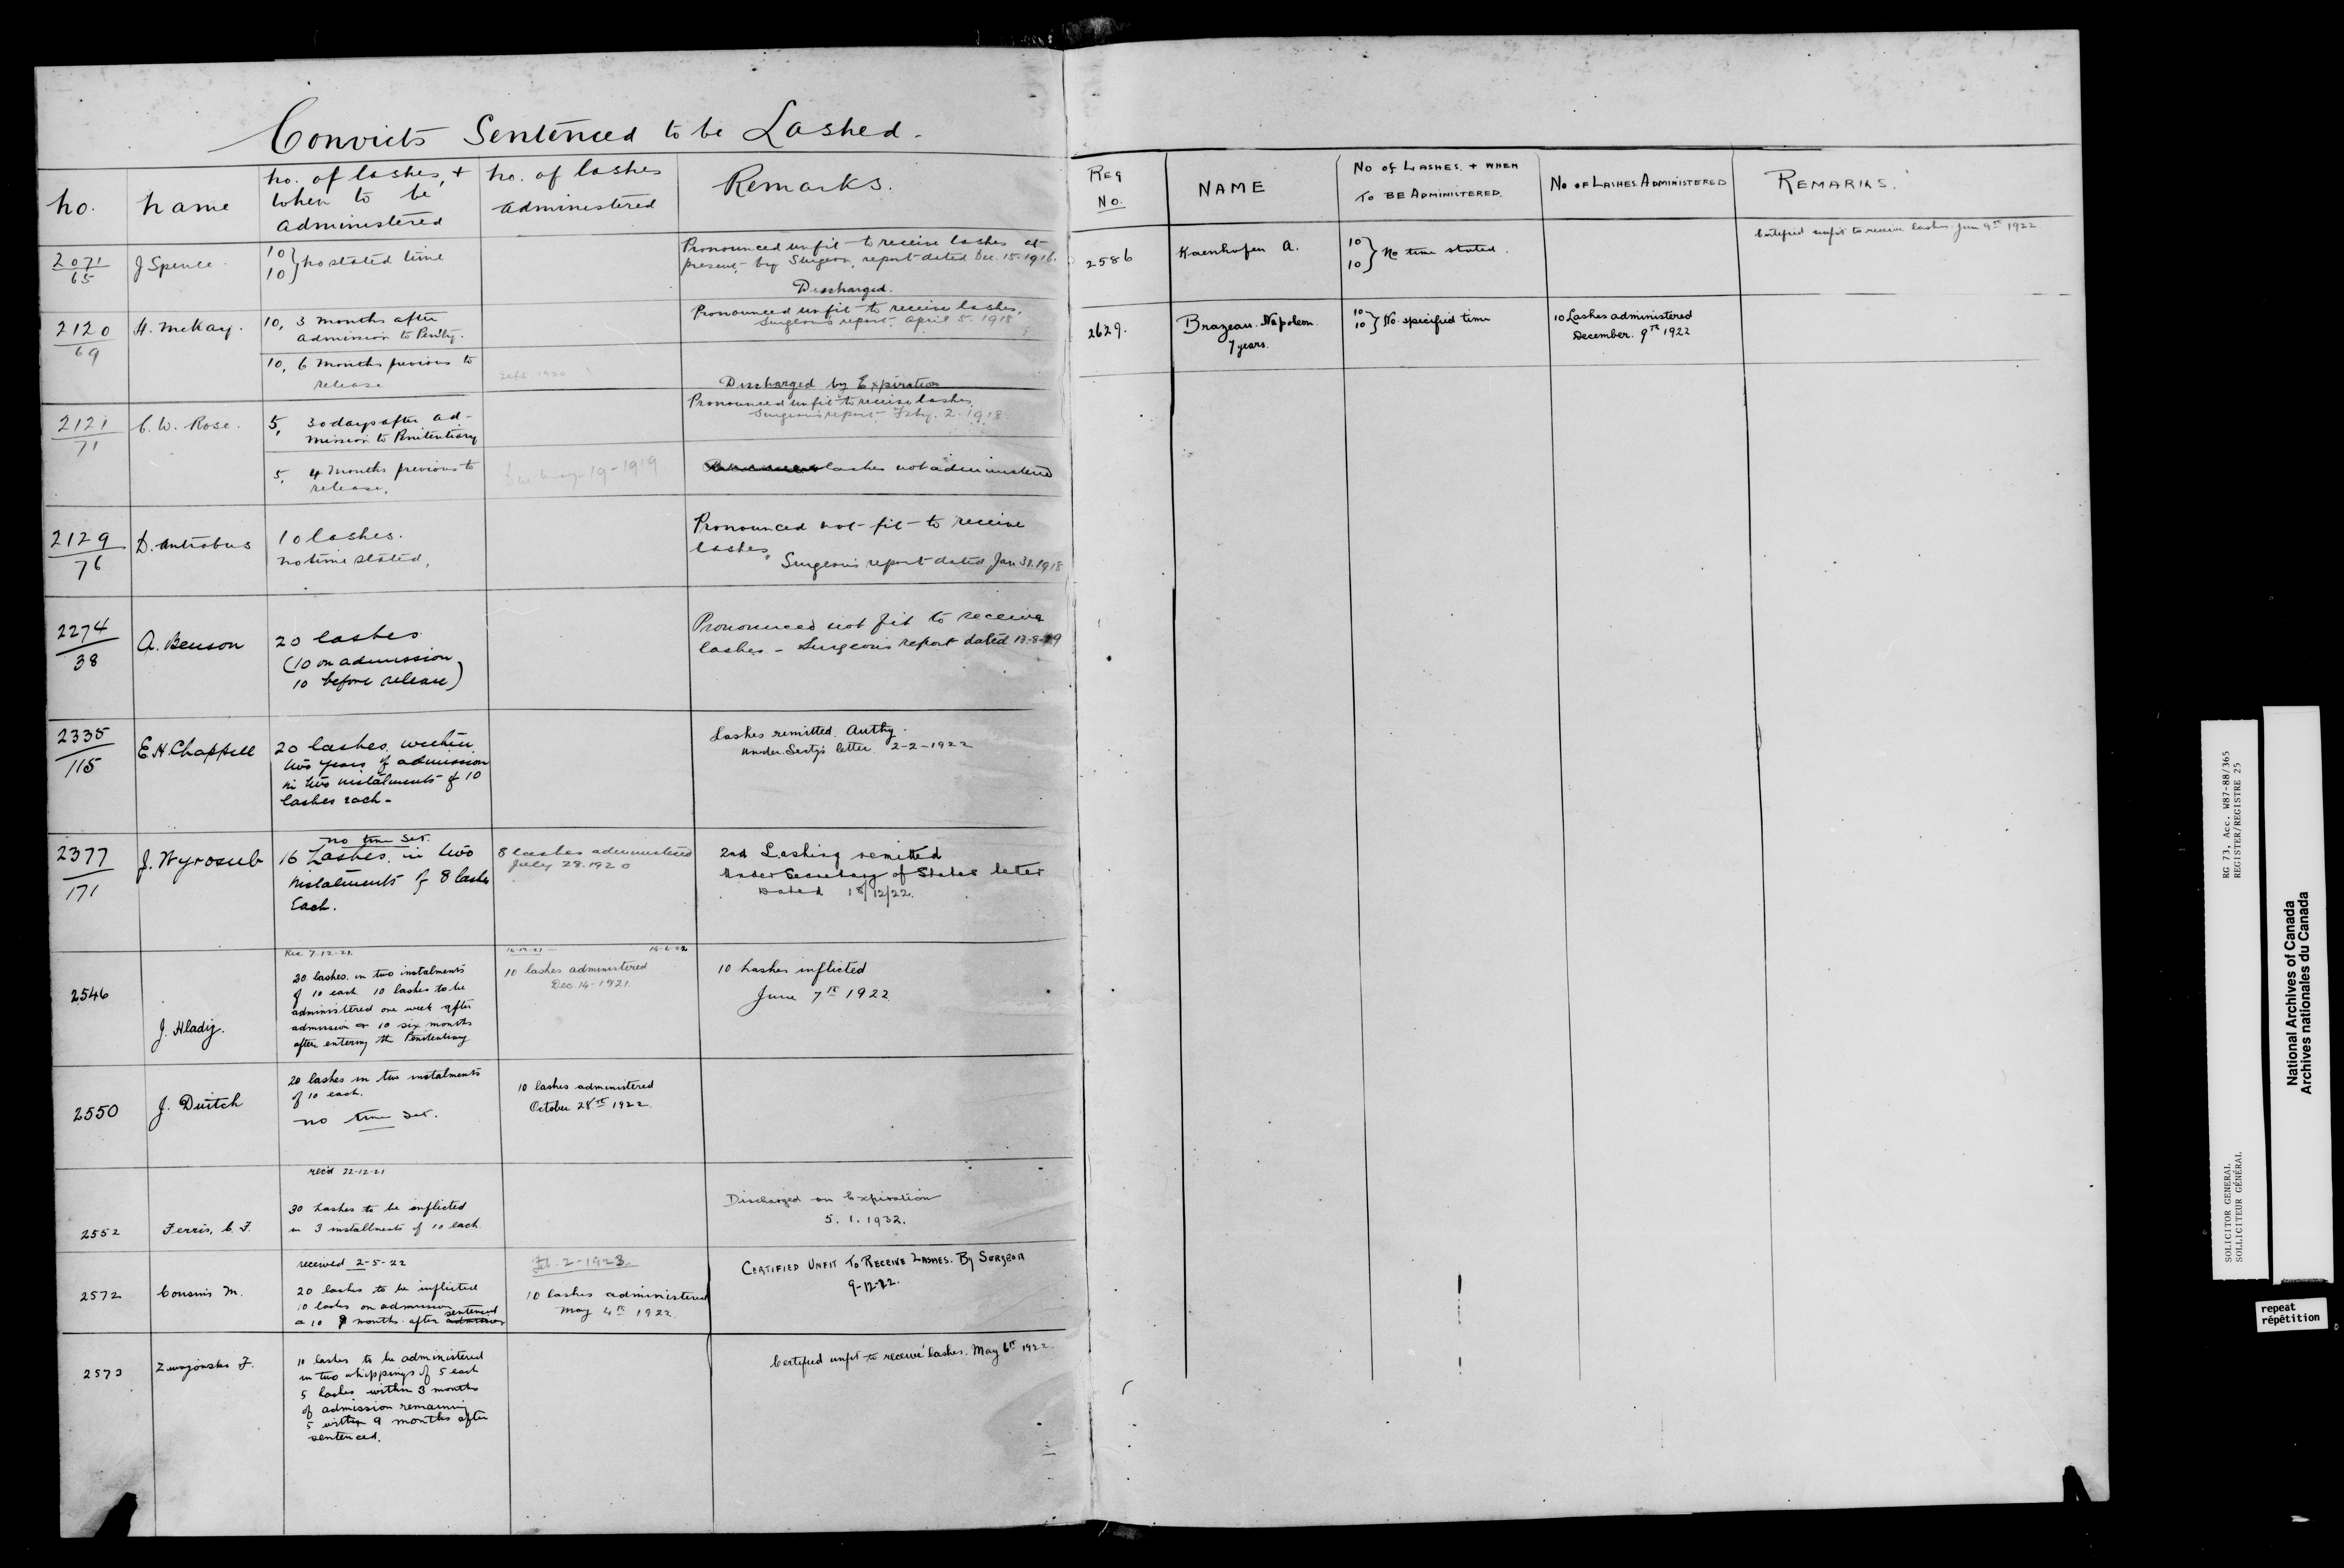 Convicts Sentenced to be Lashed.
No.
Name
No. of lashes, +
when to be
administered
No. of lashes
administered
Remarks.
2071
65
J Spence.
10
10 } No stated time
Pronounced unfit to receive lashes at
present by Surgeon, report dated Dec. 15. 1916.
Discharged.
2120
69
H. McKay.
10, 3 months after
admission to Penity.
Pronounced unfit to receive lashes.
Surgeon's report April 5. 1918
10, 6 months previous to
release
Sept 1920
Discharged by Expiration
2121
71
C. W. Rose.
5, 30 days after ad-
mission to Penitentiary
Pronounced unfit to receive lashes
Surgeon's report Feby. 2. 1918.
5, 4 months previous to
release.
May 19-1919
lashes not administered
2129
76
D. Antrobus
10 lashes.
no time stated,
Pronounced not fit to receive
lashes,
Surgeon's report dated Jan 31. 1918
2274
38
A. Benson
20 lashes
(10 on admission
10 before release)
Pronounced not fit to receive
lashes - Surgeon's report dated 13-8-19
2335
115
E. H. Chappell
20 lashes within
two years of admission
in two instalments of 10
lashes each -
Lashes remitted. Authy.
Under-Secty's letter 2-2-1922
2377
171
J. Wyrosub
no time set.
16 Lashes in two
instalments of 8 lashes
Each.
8 lashes administered
July 28. 1920
2nd Lashing remitted
Under Secretary of States letter
Dated 18/12/22.
2546
J. Hladij.
Rec. 7-12-21.
20 lashes in two instalments
of 10 each 10 lashes to be
administered one week after
admission & 10 six months
after entering the Penitentiary
14-12-21 - 14-6-22
10 lashes administered
Dec. 14-1921.
10 Lashes inflicted
June 7th 1922
2550
J. Duitch
20 lashes in two instalments
of 10 each.
no time set.
10 lashes administered
October 28th 1922.
2552
Ferris, C. F.
rec'd 22-12-21
30 Lashes to be inflicted
in 3 installments of 10 each.
Discharged on Expiration
5. 1. 1932.
2572
Cousins M.
received 2-5-22
20 lashes to be inflicted
10 lashes on admission
& 10 9 months after sentenced admission
Feb. 2-1923.
10 lashes administered
May 4th 1922.
CERTIFIED UNFIT TO RECEIVE LASHES. BY SURGEON
9-12-22.
2573
10 lashes to be administered
in two whippings of 5 each
5 lashes within 3 months
of admission remaining
5 within 9 months after
sentenced.
Certified unfit to receive lashes. May 6th 1922.
REG
NO.
NAME
NO OF LASHES. + WHEN
TO BE ADMINISTERED.
NO OF LASHES ADMINISTERED
REMARKS.
2586
Kaenhofen A.
10
10 } No time stated.
Certified unfit to receive lashes Jun 9th 1922
2629.
Brazeau. Napoleon.
7 years.
10
10 } No specified time
10 Lashes administered
December. 9th 1922
RG 73, Acc. W87-88/365
REGISTER/REGISTRE 25
SOLICITOR GENERAL
SOLLICITEUR GÉNÉRAL
National Archives of Canada
Archives nationales du Canada
repeat
répétition